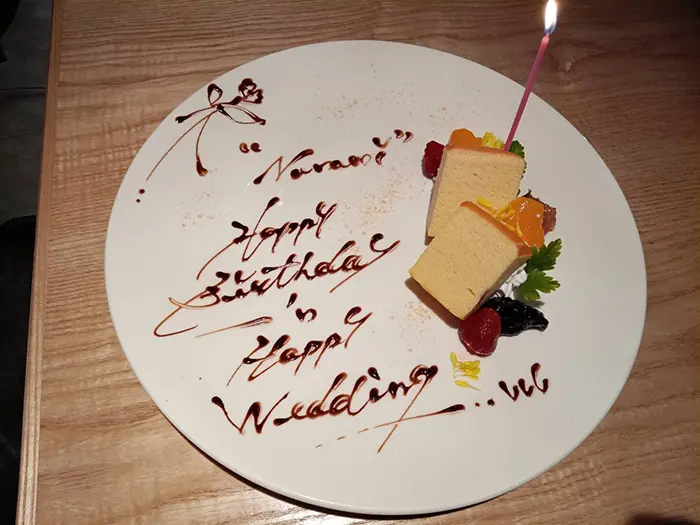 "Narami"
Happy
Birthday
'n
Happy
Wedding...